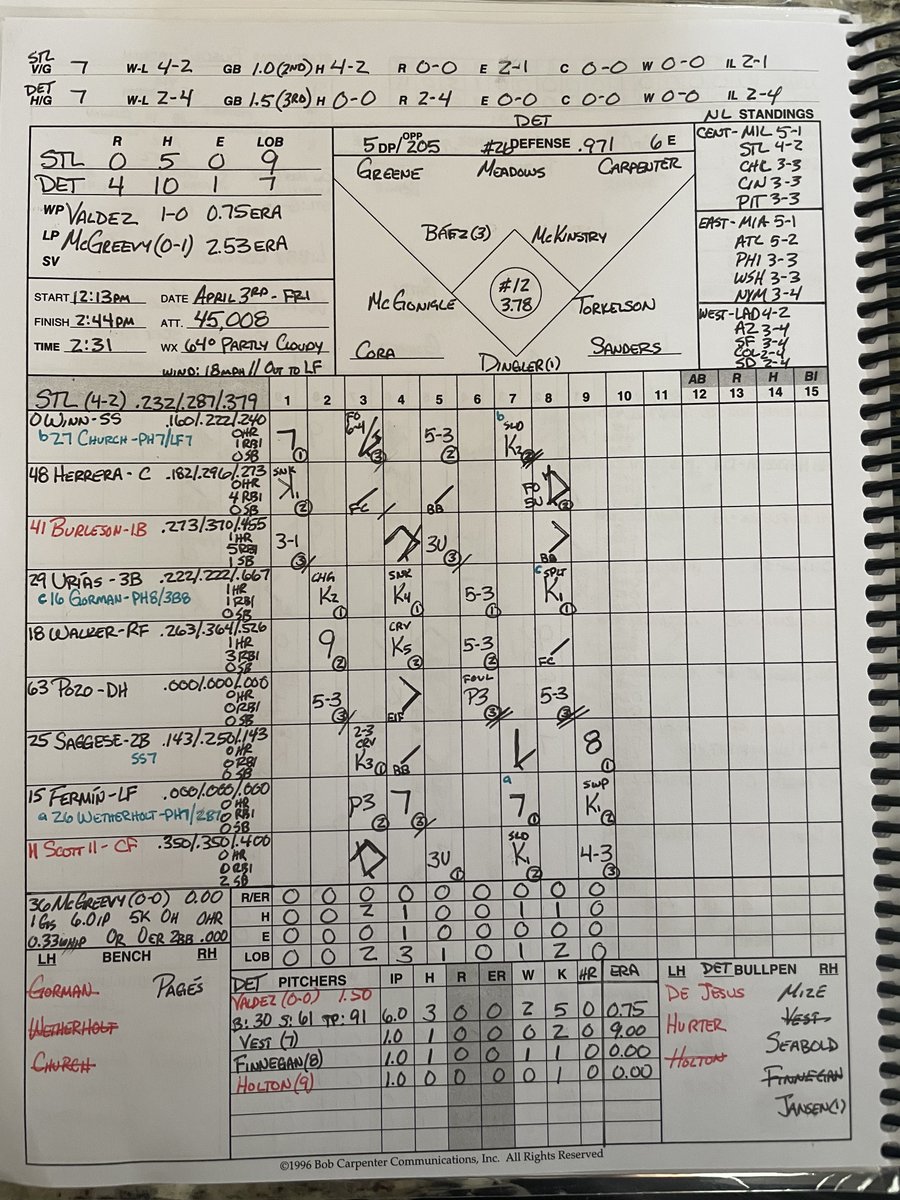 STL V/G 7 W-L 4-2 GB 1.0(2ND) H 4-2 R 0-0 E 2-1 C 0-0 W 0-0 IL 2-1
DET H/G 7 W-L 2-4 GB 1.5(3RD) H 0-0 R 2-4 E 0-0 C 0-0 W 0-0 IL 2-4
R H E LOB
STL 0 5 0 9
DET 4 10 1 7
WP VALDEZ 1-0 0.75 ERA
LP McGREEVY (0-1) 2.53 ERA
SV
START 12:13PM DATE APRIL 3RD - FRI
FINISH 2:44PM ATT. 45,008
TIME 2:31 WX 64° PARTLY CLOUDY
WIND: 18MPH // OUT TO LF
DET
5 DP/205 OPP #26 DEFENSE .971 6 E
GREENE MEADOWS CARPENTER
BÁEZ(3) McKINSTRY
McGONIGLE #12 3.78 TORKELSON
CORA DINGLER(1) SANDERS
NL STANDINGS
CENT- MIL 5-1
STL 4-2
CHC 3-3
CIN 3-3
PIT 3-3
EAST- MIA 5-1
ATL 5-2
PHI 3-3
WSH 3-3
NYM 3-4
WEST- LAD 4-2
AZ 3-4
SF 3-4
COL 2-4
SD 2-4
AB R H BI
STL (4-2) .232/.287/.379 1 2 3 4 5 6 7 8 9 10 11 12 13 14 15
0 WINN-SS .160/.222/.240
0HR
1RBI
0SB
b27 CHURCH-PH7/LF7
7 1 FO 6-4 3 5-3 2 b SLD K2
48 HERRERA - C .182/.296/.273
0HR
4RBI
0SB
SNK K1 2 FC BB FO 5U 2
41 BURLESON-1B .273/.370/.455
1HR
5RBI
1SB
3-1 3 3U 3 BB
29 URÍAS - 3B .222/.222/.667
1HR
1RBI
0SB
c16 GORMAN-PH8/3B8
CHG K2 1 SNK K4 1 5-3 1 c SPLT K1 1
18 WALKER-RF .263/.364/.526
1HR
3RBI
0SB
9 2 CRV K5 2 5-3 2 FC
63 POZO - DH .000/.000/.000
0HR
0RBI
0SB
5-3 3 FOUL P3 3 5-3 3
25 SAGGESE-2B .143/.250/.143
0HR
0RBI
0SB
SS7
2-3 CRV K3 1 BB 8 1
15 FERMÍN-LF .000/.000/.000
0HR
0RBI
0SB
a 26 WETHERHOLT-PH7/2B7
P3 2 7 3 a 7 1 SWP K1 2
11 SCOTT II - CF .350/.350/.400
0HR
0RBI
2SB
3U 1 SLD K1 2 4-3 3
36 McGREEVY (0-0) 0.00
1GS 6.0IP 5K 0H 0HR
0.33WHIP 0R 0ER 2BB .000
R/ER 0 0 0 0 0 0 0 0 0
H 0 0 2 1 0 0 1 1 0
E 0 0 0 1 0 0 0 0 0
LOB 0 0 2 3 1 0 1 2 0
LH BENCH RH
GORMAN PAGÉS
WETHERHOLT
CHURCH
DET PITCHERS IP H R ER W K HR ERA
VALDEZ (0-0) 1.50
B: 30 S: 61 TP: 91 6.0 3 0 0 2 5 0 0.75
VEST (7) 1.0 1 0 0 0 2 0 9.00
FINNEGAN (8) 1.0 1 0 0 1 1 0 0.00
HOLTON (9) 1.0 0 0 0 0 1 0 0.00
LH DET BULLPEN RH
DE JESUS MIZE
HURTER VEST
HOLTON SEABOLD
FINNEGAN
JANSEN(1)
©1996 Bob Carpenter Communications, Inc. All Rights Reserved